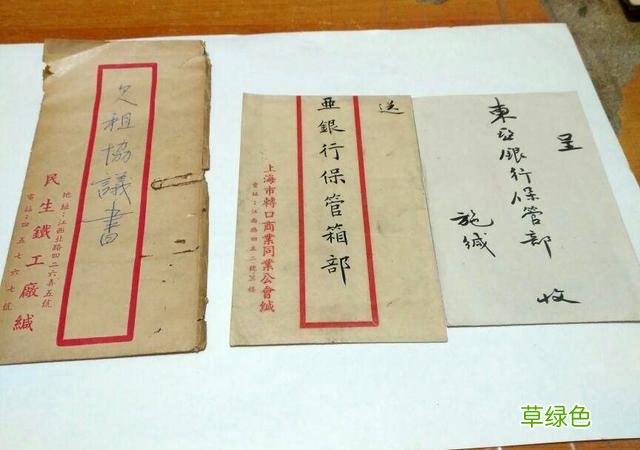 欠租協議書
地址:江西北路四二六弄五號
民生鐵工廠緘
電話:四五七六七號
送
亜銀行保管箱部
上海市轉口商業同業公會緘
江西路四五二號
呈
東亞銀行保管部
收
施緘
草绿色